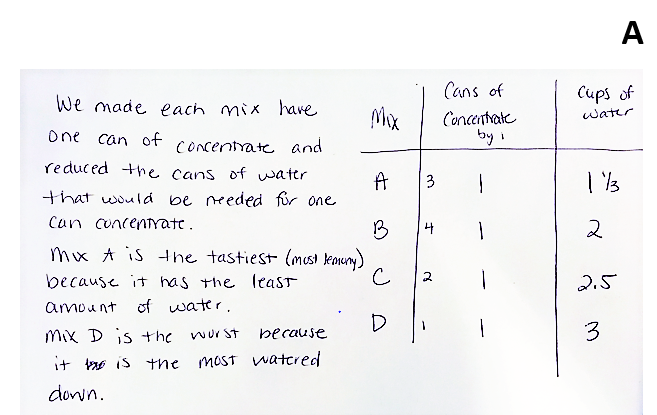 A
We made each mix have
one can of concentrate and
reduced the cans of water
that would be needed for one
can concentrate.
Mix A is the tastiest (most lemony)
because it has the least
amount of water.
Mix D is the worst because
it is the most watered
down.
Mix Cans of Concentrate by 1 Cups of water
A 3 1 1 1/3
B 4 1 2
C 2 1 2.5
D 1 1 3